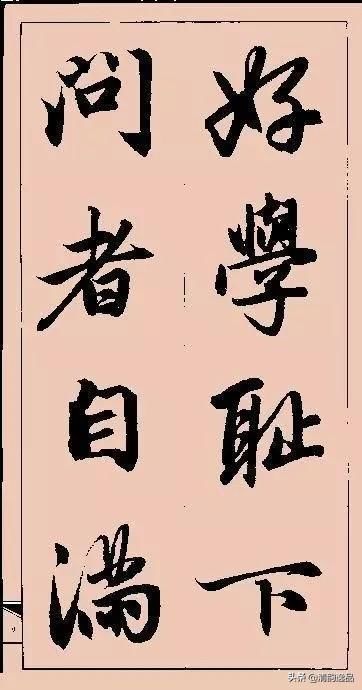 好學耻下
問者自满
头条@清韵逸品